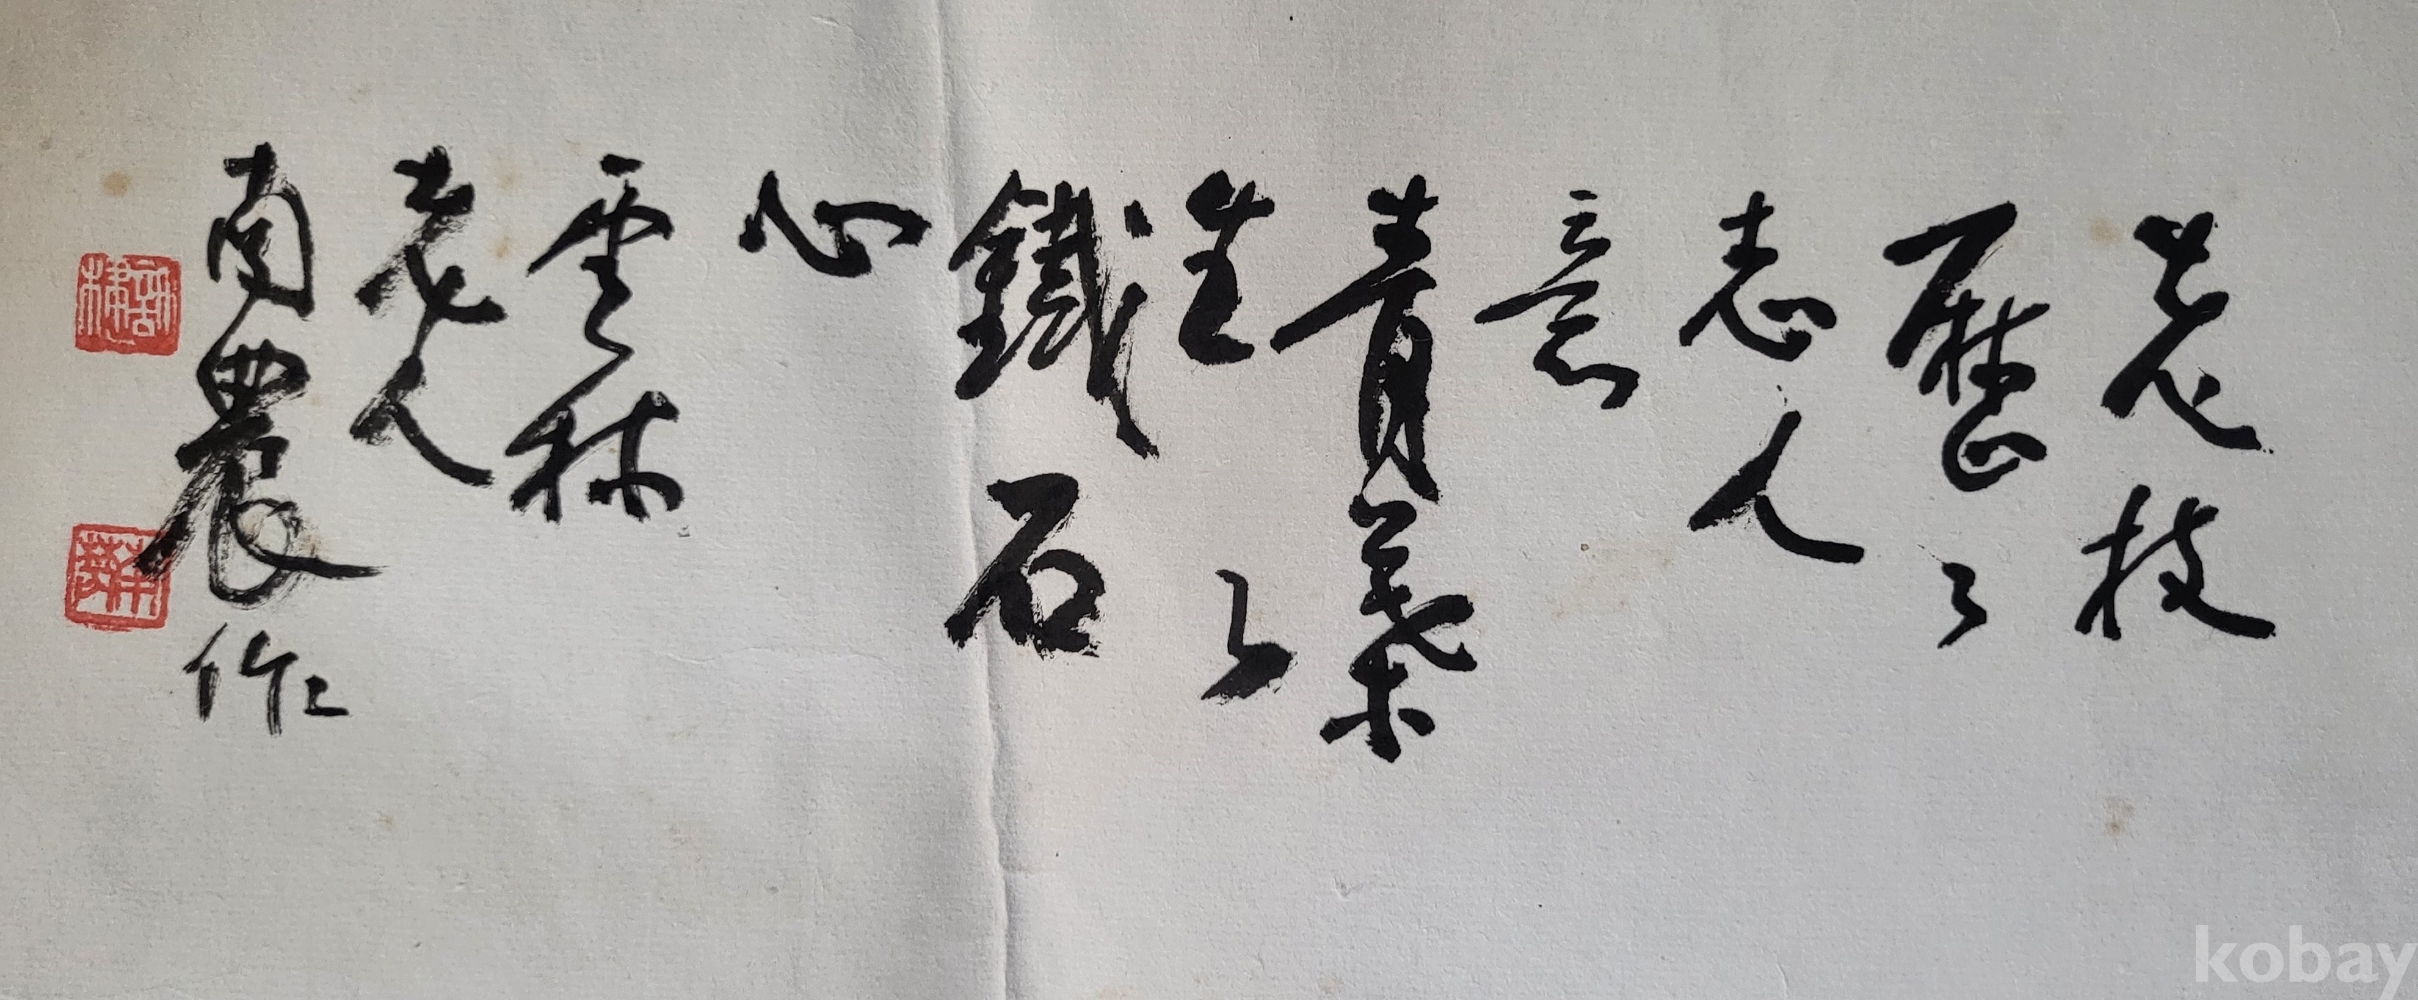 老枝
歷〻
志人
意
青葉
生〻
鐵石
心
雲林
老人
南農作
kobay